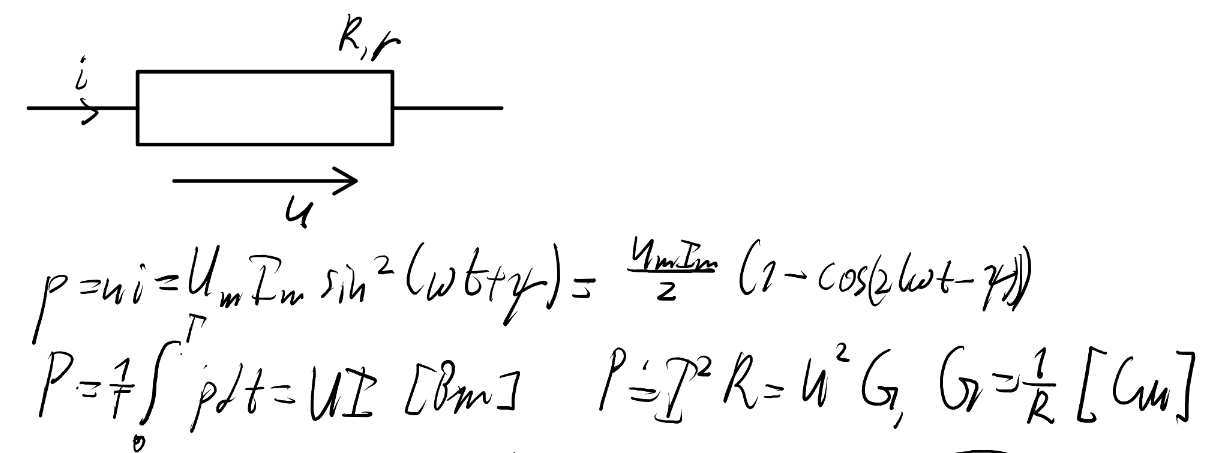 R, r
i
u
p = ui = U_m I_m sin²(ωt+ψ) = U_m I_m / 2 (1 - cos(2(ωt-ψ)))
P = 1/T ∫₀ᵀ pdt = UI [Вт] P = I² R = U² G, G = 1/R [См]